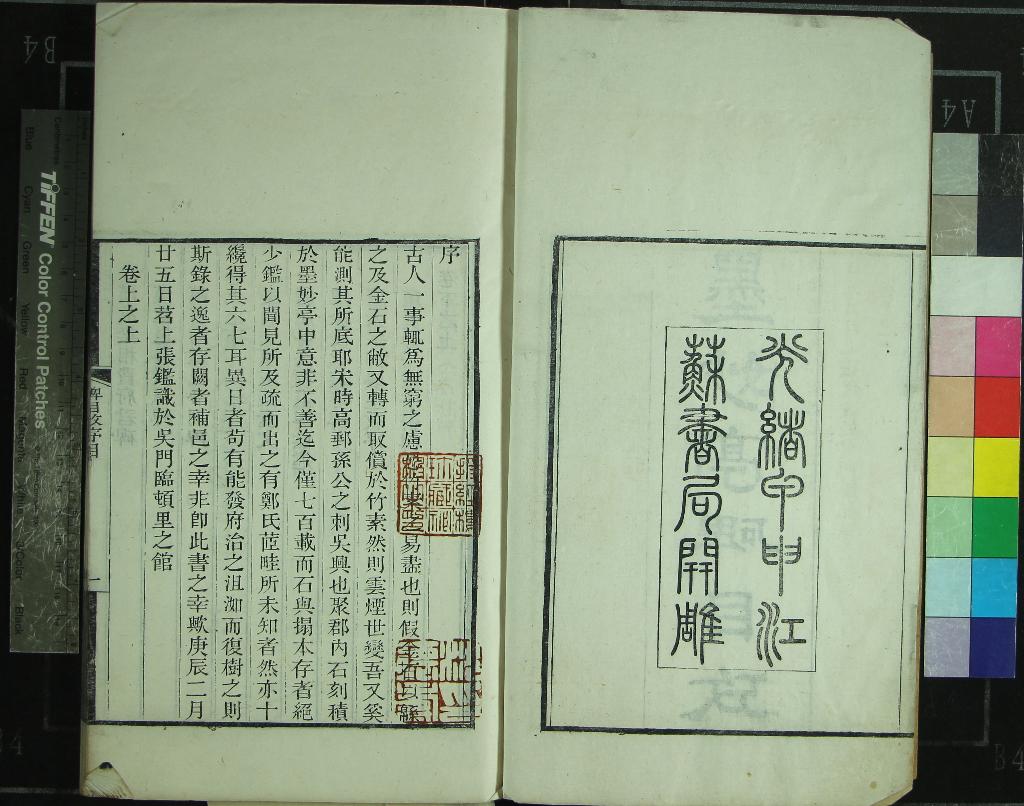 光緒甲申江
蘇書局開雕
序
古人一事輒為無窮之慮
易盡也則假金石以縣
之及金石之敝又轉而取償於竹素然則雲煙世變吾又奚
能測其所底耶宋時高郵孫公之刺吳興也聚郡內石刻積
於墨妙亭中意非不善迄今僅七百載而石與搨本存者絕
少鑑以聞見所及疏而出之有鄭氏芷畦所未知者然亦十
纔得其六七耳異日者苟有能發府治之沮洳而復樹之則
斯錄之逸者存闕者補邑之幸非卽此書之幸歟庚辰二月
廿五日苕上張鑑識於吳門臨頓里之館
卷上之上
碑目攷序目
一
TIFFEN Color Control Patches
Blue
Cyan
Green
Yellow
Red
Magenta
White
3/Color
Black
B4
A4
B4